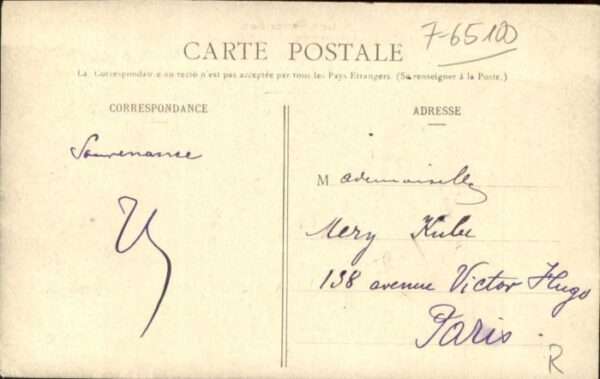 7-65100
CARTE POSTALE
La Correspondance au recto n'est pas acceptée par tous les Pays Etrangers. (Se renseigner à la Poste.)
CORRESPONDANCE
Souvenance
ADRESSE
Mademoiselle
Mery
138 avenue Victor Hugo
Paris.
R